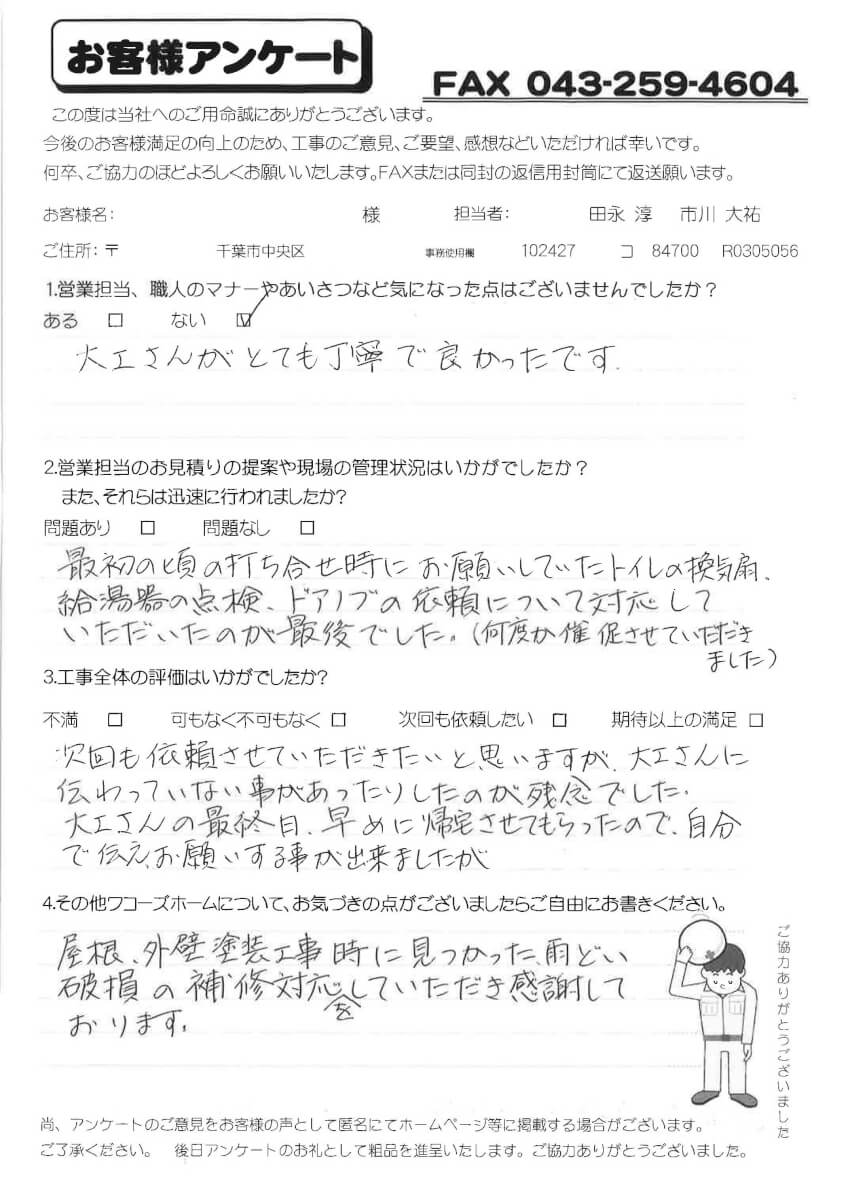 お客様アンケート
FAX 043-259-4604
この度は当社へのご用命誠にありがとうございます。
今後のお客様満足の向上のため、工事のご意見、ご要望、感想などいただければ幸いです。
何卒、ご協力のほどよろしくお願いいたします。FAXまたは同封の返信用封筒にて返送願います。
お客様名: 様 担当者: 田永 淳 市川 大祐
ご住所: 〒 千葉市中央区 事務使用欄 102427 コ 84700 R0305056
1.営業担当、職人のマナーやあいさつなど気になった点はございませんでしたか?
ある □ ない ☑
大工さんがとても丁寧で良かったです.
2.営業担当のお見積りの提案や現場の管理状況はいかがでしたか?
また、それらは迅速に行われましたか?
問題あり □ 問題なし □
最初の頃の打ち合せ時にお願いしていたトイレの換気扇、
給湯器の点検、ドアノブの依頼について対応して
いただいたのが最後でした。(何度か催促させていただき
ました)
3.工事全体の評価はいかがでしたか?
不満 □ 可もなく不可もなく □ 次回も依頼したい □ 期待以上の満足 □
次回も依頼させていただきたいと思いますが、大工さんに
伝わっていない事があったりしたのが残念でした.
大工さんの最終日、早めに帰宅させてもらったので、自分
で伝え、お願いする事が出来ましたが
4.その他ワコーズホームについて、お気づきの点がございましたらご自由にお書きください。
屋根、外壁塗装工事時に見つかった、雨どい
破損の補修対応をしていただき感謝して
おります。
ご協力ありがとうございました
尚、アンケートのご意見をお客様の声として匿名にてホームページ等に掲載する場合がございます。
ご了承ください。 後日アンケートのお礼として粗品を進呈いたします。ご協力ありがとうございました。